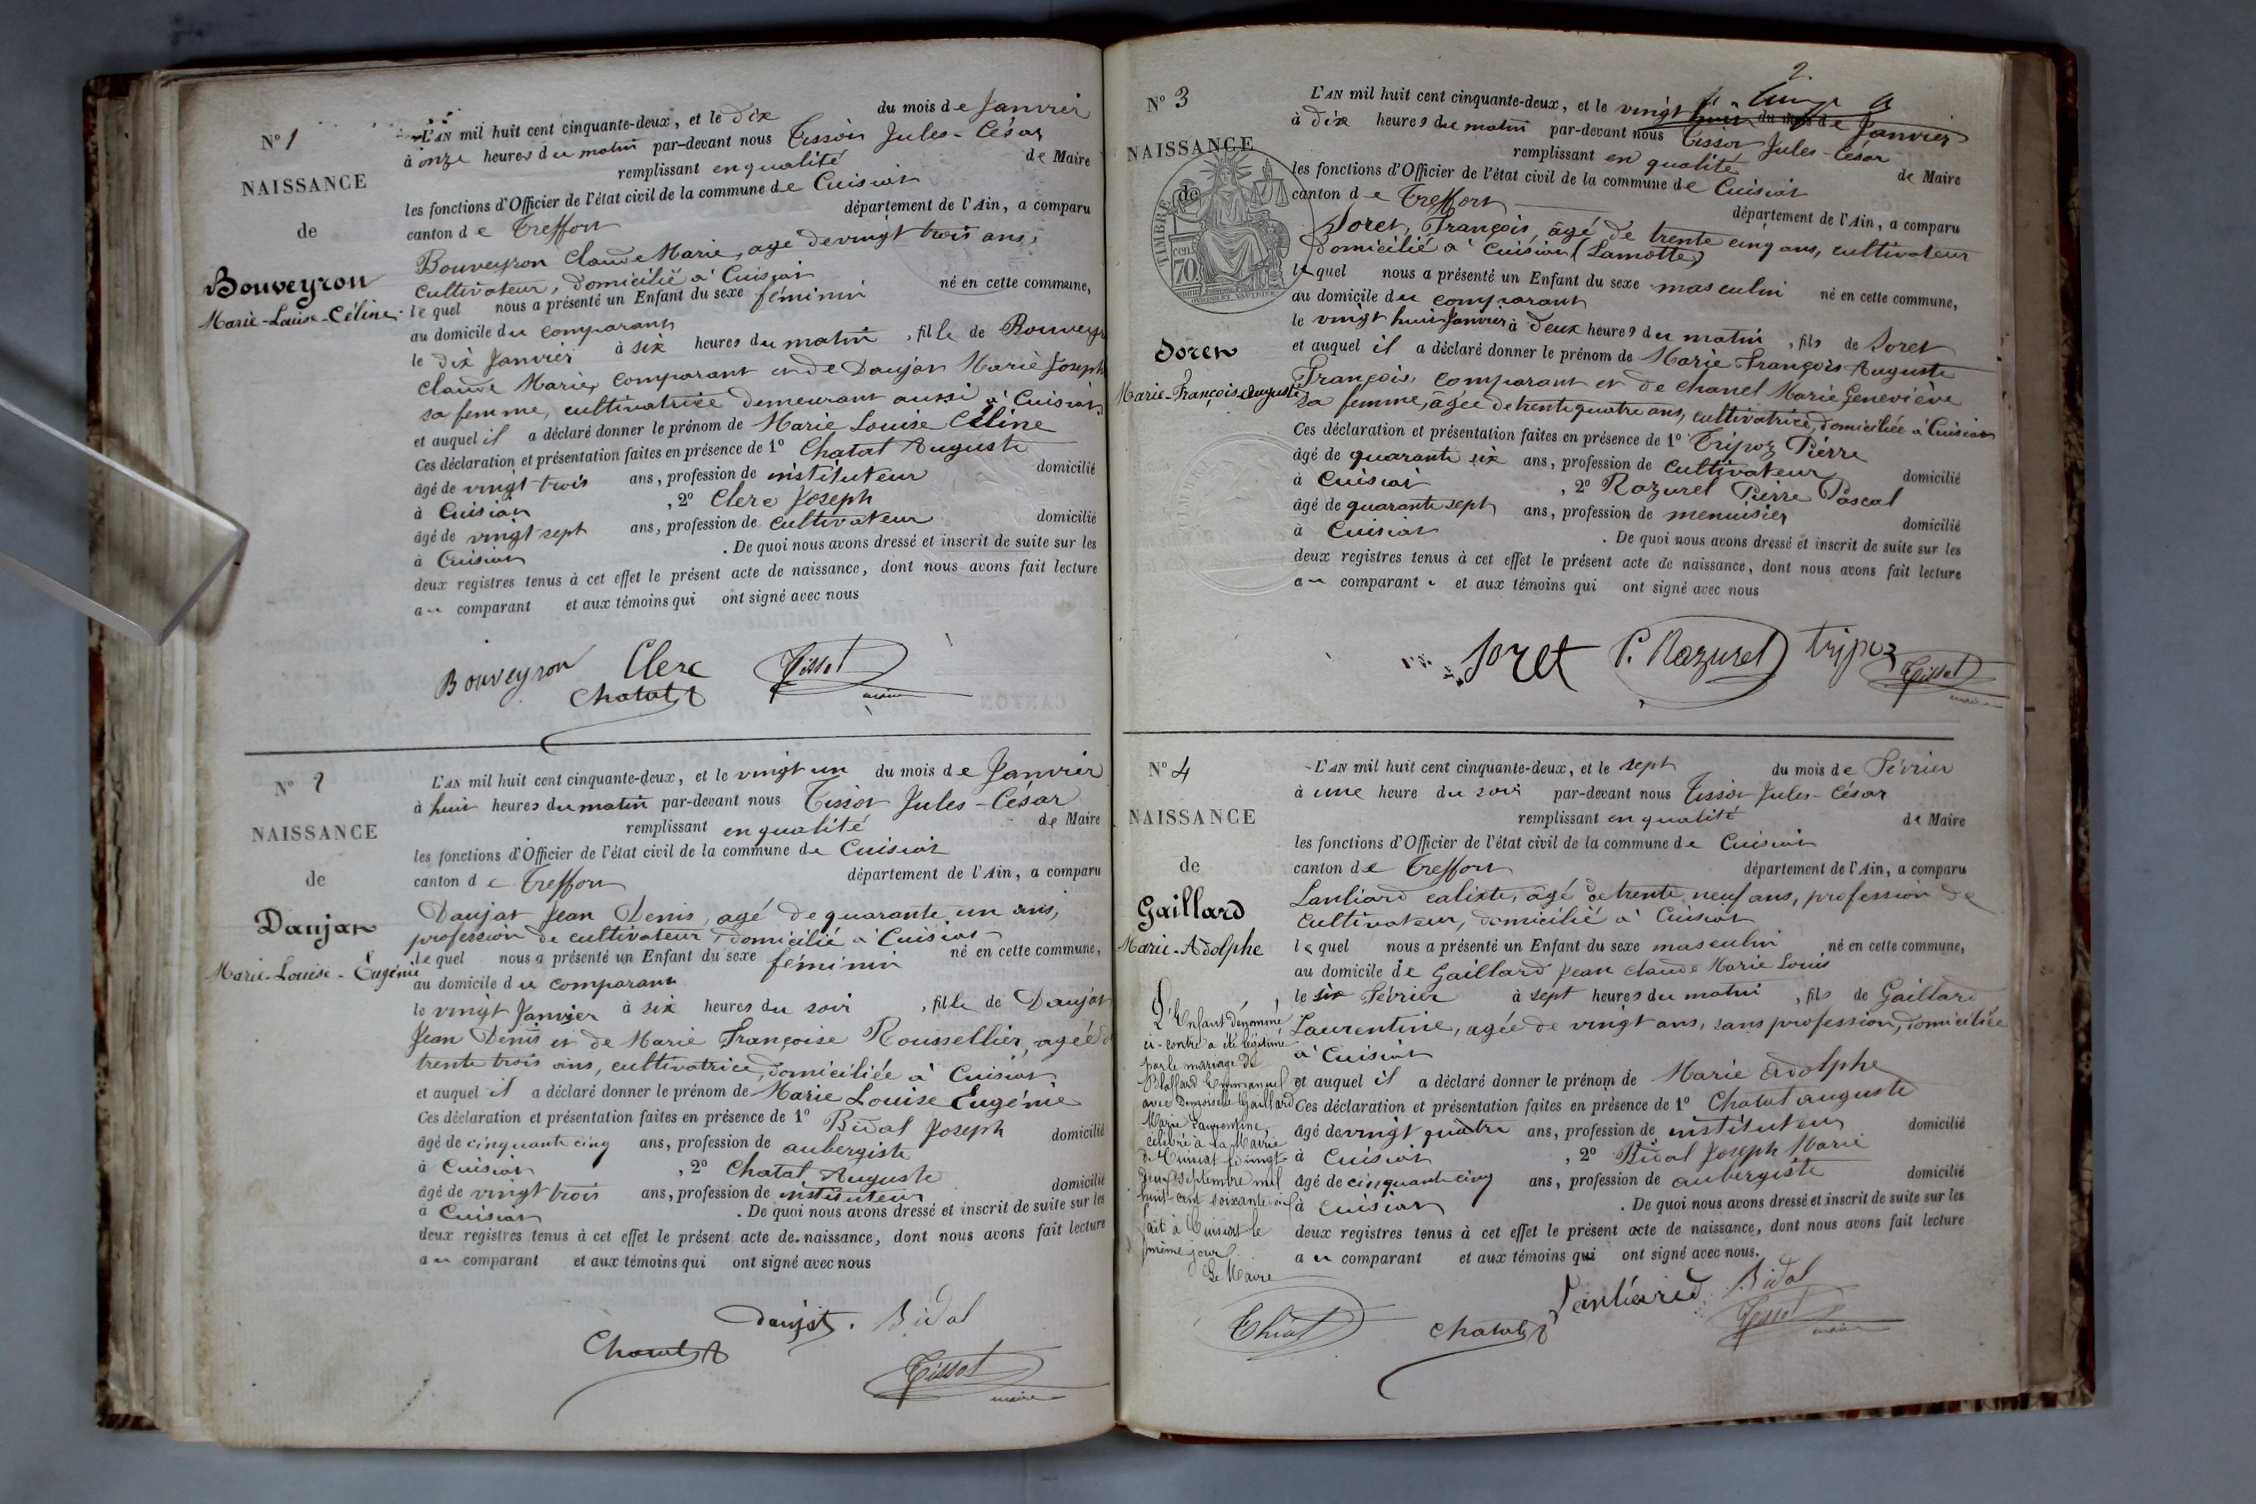 N° 1
NAISSANCE
de
Bouveyron
Marie-Louise-Céline
L'AN mil huit cent cinquante-deux, et le dix du mois de Janvier
à onze heures du matin par-devant nous Tissot Jules-César
remplissant en qualité de Maire
les fonctions d'Officier de l'état civil de la commune de Cuisiat
canton de Treffort département de l'Ain, a comparu
Bouveyron Claude Marie, agé de vingt trois ans,
cultivateur, domicilié à Cuisiat
lequel nous a présenté un Enfant du sexe féminin né en cette commune,
au domicile du comparant
le dix Janvier à six heures du matin, fille de Bouveyr
Claude Marie, comparant et de Daujat Marie Joseph
sa femme, cultivatrice demeurant aussi à Cuisiat,
et auquel il a déclaré donner le prénom de Marie Louise Céline
Ces déclaration et présentation faites en présence de 1° Chatat Auguste
âgé de vingt trois ans, profession de instituteur domicilié
à Cuisiat, 2° Clerc Joseph
âgé de vingt sept ans, profession de cultivateur domicilié
à Cuisiat. De quoi nous avons dressé et inscrit de suite sur les
deux registres tenus à cet effet le présent acte de naissance, dont nous avons fait lecture
au comparant et aux témoins qui ont signé avec nous
Bouveyron Clerc Tissot
Chatat maire
N° 2
NAISSANCE
de
Daujat
Marie-Louise-Eugénie
L'AN mil huit cent cinquante-deux, et le vingt un du mois de Janvier
à huit heures du matin par-devant nous Tissot Jules-César
remplissant en qualité de Maire
les fonctions d'Officier de l'état civil de la commune de Cuisiat
canton de Treffort département de l'Ain, a comparu
Daujat Jean Denis, agé de quarante un ans,
profession de cultivateur, domicilié à Cuisiat
lequel nous a présenté un Enfant du sexe féminin né en cette commune,
au domicile du comparant
le vingt Janvier à six heures du soir, fille de Daujat
Jean Denis et de Marie Françoise Roussellier, agée d
trente trois ans, cultivatrice, domiciliée à Cuisiat
et auquel il a déclaré donner le prénom de Marie Louise Eugénie
Ces déclaration et présentation faites en présence de 1° Bidal Joseph
âgé de cinquante cinq ans, profession de aubergiste domicilié
à Cuisiat, 2° Chatat Auguste
âgé de vingt trois ans, profession de instituteur domicilié
à Cuisiat. De quoi nous avons dressé et inscrit de suite sur les
deux registres tenus à cet effet le présent acte de naissance, dont nous avons fait lecture
au comparant et aux témoins qui ont signé avec nous
daujat. Bidal
Chatat Tissot
maire
2
N° 3
NAISSANCE
de
TIMBRE
70
Soret
Marie-François-Auguste
L'AN mil huit cent cinquante-deux, et le vingt huit du mois de Janvier
à dix heures du matin par-devant nous Tissot Jules-César
remplissant en qualité de Maire
les fonctions d'Officier de l'état civil de la commune de Cuisiat
canton de Treffort département de l'Ain, a comparu
Soret, François, âgé de trente cinq ans, cultivateur
domicilié à Cuisiat (Lamotte)
lequel nous a présenté un Enfant du sexe masculin né en cette commune,
au domicile du comparant
le vingt huit Janvier à deux heures du matin, fils de Soret
et auquel il a déclaré donner le prénom de Marie François Auguste
François, comparant et de Chanel Marie Geneviève
sa femme, âgée de trente quatre ans, cultivatrice, domiciliée à Cuisiat
Ces déclaration et présentation faites en présence de 1° Tripoz Pierre
âgé de quarante six ans, profession de cultivateur domicilié
à Cuisiat, 2° Razurel Pierre Pascal
âgé de quarante sept ans, profession de menuisier domicilié
à Cuisiat. De quoi nous avons dressé et inscrit de suite sur les
deux registres tenus à cet effet le présent acte de naissance, dont nous avons fait lecture
au comparant et aux témoins qui ont signé avec nous
Soret P. Razurel tripoz
Tissot
maire
N° 4
NAISSANCE
de
Gaillard
Marie-Adolphe
L'Enfant dénommé
ci-contre a été légitimé
par le mariage de
Blaffard Emmanuel
avec Demoiselle Gaillard
Marie Laurentine,
célébré à la Mairie
de Cuisiat le vingt
deux septembre mil
huit cent soixante
fait à Cuisiat le
même jour.
Le Maire
Thiat
L'AN mil huit cent cinquante-deux, et le sept du mois de Février
à une heure du soir par-devant nous Tissot Jules-César
remplissant en qualité de Maire
les fonctions d'Officier de l'état civil de la commune de Cuisiat
canton de Treffort département de l'Ain, a comparu
Lanliard calixte, âgé de trente neuf ans, profession de
cultivateur, domicilié à Cuisiat
lequel nous a présenté un Enfant du sexe masculin né en cette commune,
au domicile de Gaillard Jean Claude Marie Louis
le six Février à sept heures du matin, fils de Gaillard
Laurentine, agée de vingt ans, sans profession, domiciliée
à Cuisiat
et auquel il a déclaré donner le prénom de Marie Adolphe
Ces déclaration et présentation faites en présence de 1° Chatat auguste
âgé de vingt quatre ans, profession de instituteur domicilié
à Cuisiat, 2° Bidal Joseph Marie
âgé de cinquante cinq ans, profession de aubergiste domicilié
à Cuisiat. De quoi nous avons dressé et inscrit de suite sur les
deux registres tenus à cet effet le présent acte de naissance, dont nous avons fait lecture
au comparant et aux témoins qui ont signé avec nous.
Lanliard Bidal
Chatat Tissot
maire